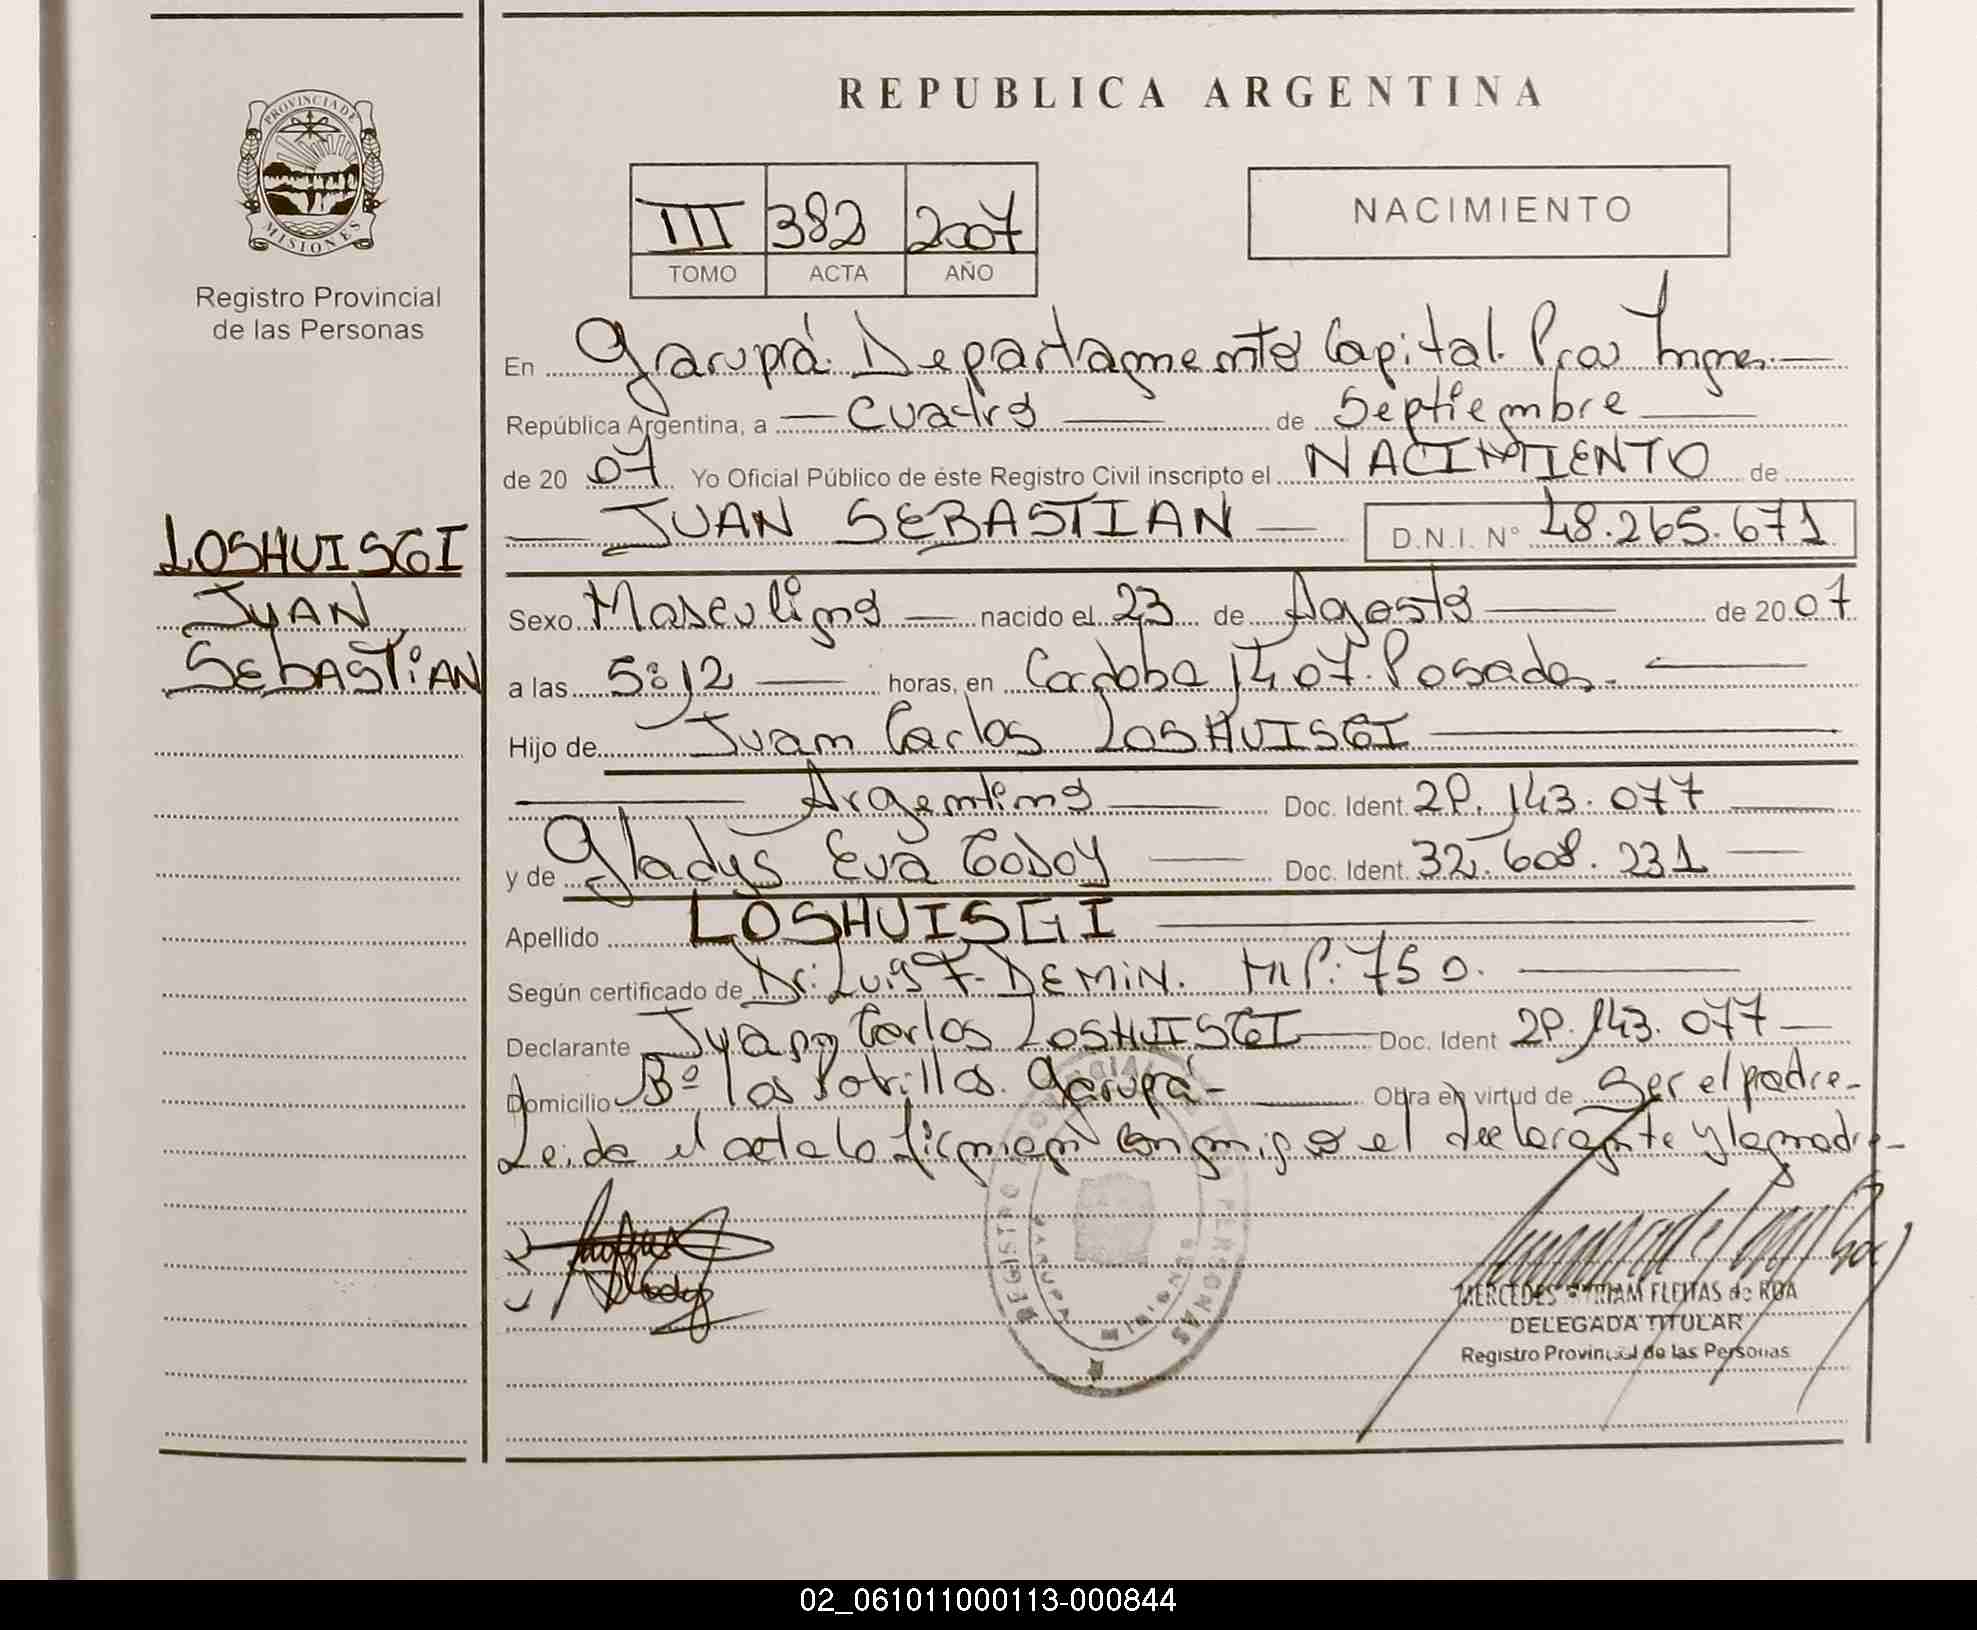 REPUBLICA ARGENTINA
PROVINCIA DE
MISIONES
Registro Provincial
de las Personas
III 382 2007
TOMO ACTA AÑO
NACIMIENTO
En Garupá. Departamento Capital. Pcia Mnes.
República Argentina, a cuatro de Septiembre
de 20 07 Yo Oficial Público de éste Registro Civil inscripto el NACIMIENTO de
JUAN SEBASTIAN D.N.I. N° 48.265.671
LOSHUISGI
JUAN
SEBASTIAN
Sexo Masculino nacido el 23 de Agosto de 20 07
a las 5:12 horas, en Cordoba 1407. Posadas.
Hijo de Juan Carlos LOSHUISGI
Argentino Doc. Ident. 29.143.077
y de Gladys Eva Godoy Doc. Ident. 32.608.231
Apellido LOSHUISGI
Según certificado de Dr: Luis F. DEMIN. MP: 750.
Declarante Juan Carlos LOSHUISGI Doc. Ident 29.143.077
Domicilio Bº los Potrillos. Garupá- Obra en virtud de Ser el padre-
Leida el acta lo firman conmigo el declarante y la madre-
REGISTRO PROVINCIAL DE LAS PERSONAS
GARUPA MISIONES
MERCEDES MYRIAM FLEITAS de ROA
DELEGADA TITULAR
Registro Provincial de las Personas
02_061011000113-000844